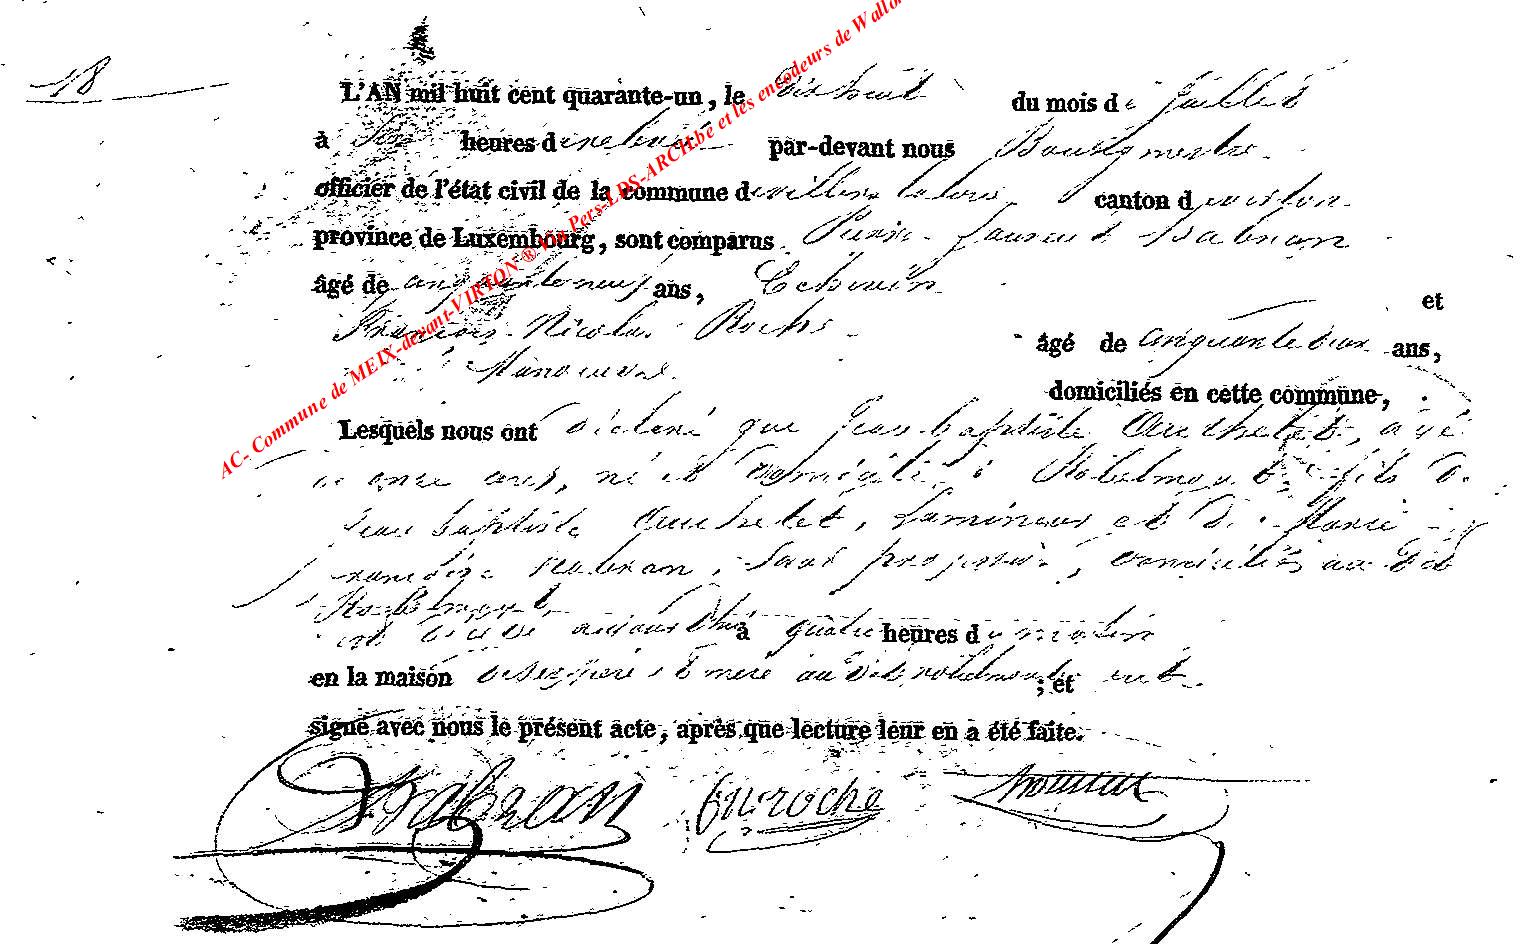 18
L'AN mil huit cent quarante-un, le dix huit du mois de juillet
à heures du par-devant nous Bourgmestre
officier de l'état civil de la commune de villers laloue canton de virton
province de Luxembourg, sont comparus Pierre Laurent Habran
âgé de cinquante neuf ans, Echevin et
François Nicolas Roche âgé de cinquante deux ans,
Manouvrier domiciliés en cette commune,
Lesquels nous ont déclaré que Jean baptiste Ouchelet, agé
de onze ans, né et domicilié à Robelmont, fils de
jean baptiste Ouchelet, Lamineur et de Marie
Habran, sans profession, domiciliés au dit
Robelmont
est décédé aujourd'hui à quatre heures du matin
en la maison de ses père et mère au dit robelmont ; et ont
signé avec nous le présent acte, après que lecture leur en a été faite.
Habran roche
AC- Commune de MEIX-devant-VIRTON ® Via Pers-LDS-ARCH.be et les encodeurs de Wallon